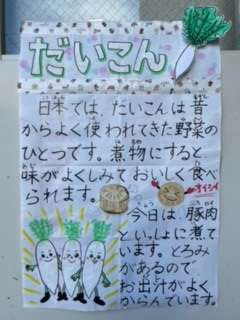 だいこん
日本では、だいこんは昔
からよく使われてきた野菜の
ひとつです。煮物にすると
味がよくしみておいしく食べ
られます。
オイシイ
今日は、豚肉
といっしょに煮て
います。とろみ
があるので
お出汁がよく
からんでいます。